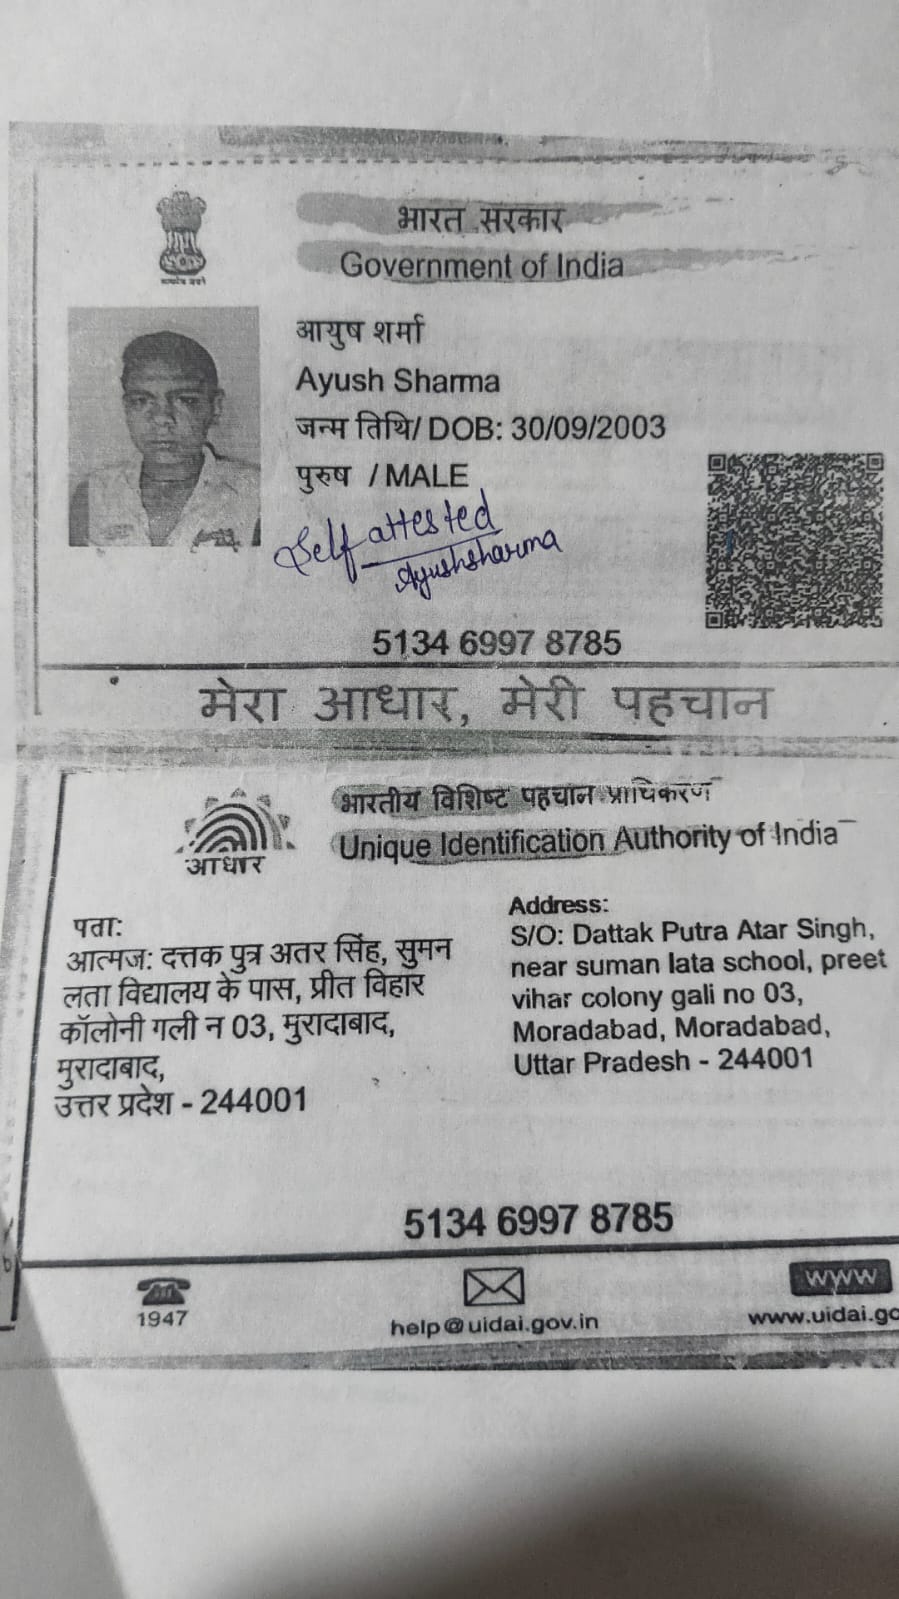 भारत सरकार
Government of India
आयुष शर्मा
Ayush Sharma
जन्म तिथि/ DOB: 30/09/2003
पुरुष / MALE
Self attested
Ayushsharma
5134 6997 8785
मेरा आधार, मेरी पहचान
भारतीय विशिष्ट पहचान प्राधिकरण
Unique Identification Authority of India
आधार
पता:
आत्मज: दत्तक पुत्र अतर सिंह, सुमन
लता विद्यालय के पास, प्रीत विहार
कॉलोनी गली न 03, मुरादाबाद,
मुरादाबाद,
उत्तर प्रदेश - 244001
Address:
S/O: Dattak Putra Atar Singh,
near suman lata school, preet
vihar colony gali no 03,
Moradabad, Moradabad,
Uttar Pradesh - 244001
5134 6997 8785
1947
help@uidai.gov.in
www
www.uidai.go